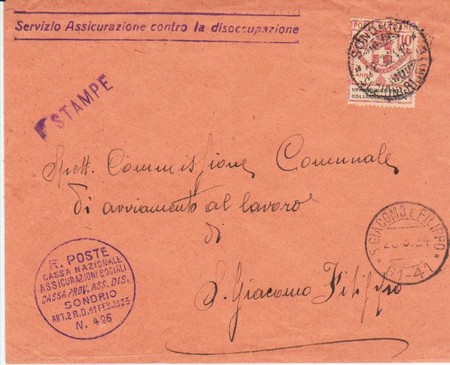 Servizio Assicurazione contro la disoccupazione
STAMPE
SONDRIO
10
Spett. Commissione Comunale
di avviamento al lavoro
di
S. Giacomo Filippo
R. POSTE
CASSA NAZIONALE
ASSICURAZIONI SOCIALI
CASSA PROV. ASS. DIS.
SONDRIO
ART. 2 R.D. 11 FEB. 1923
N. 496
S. GIACOMO E FILIPPO
24
61-41